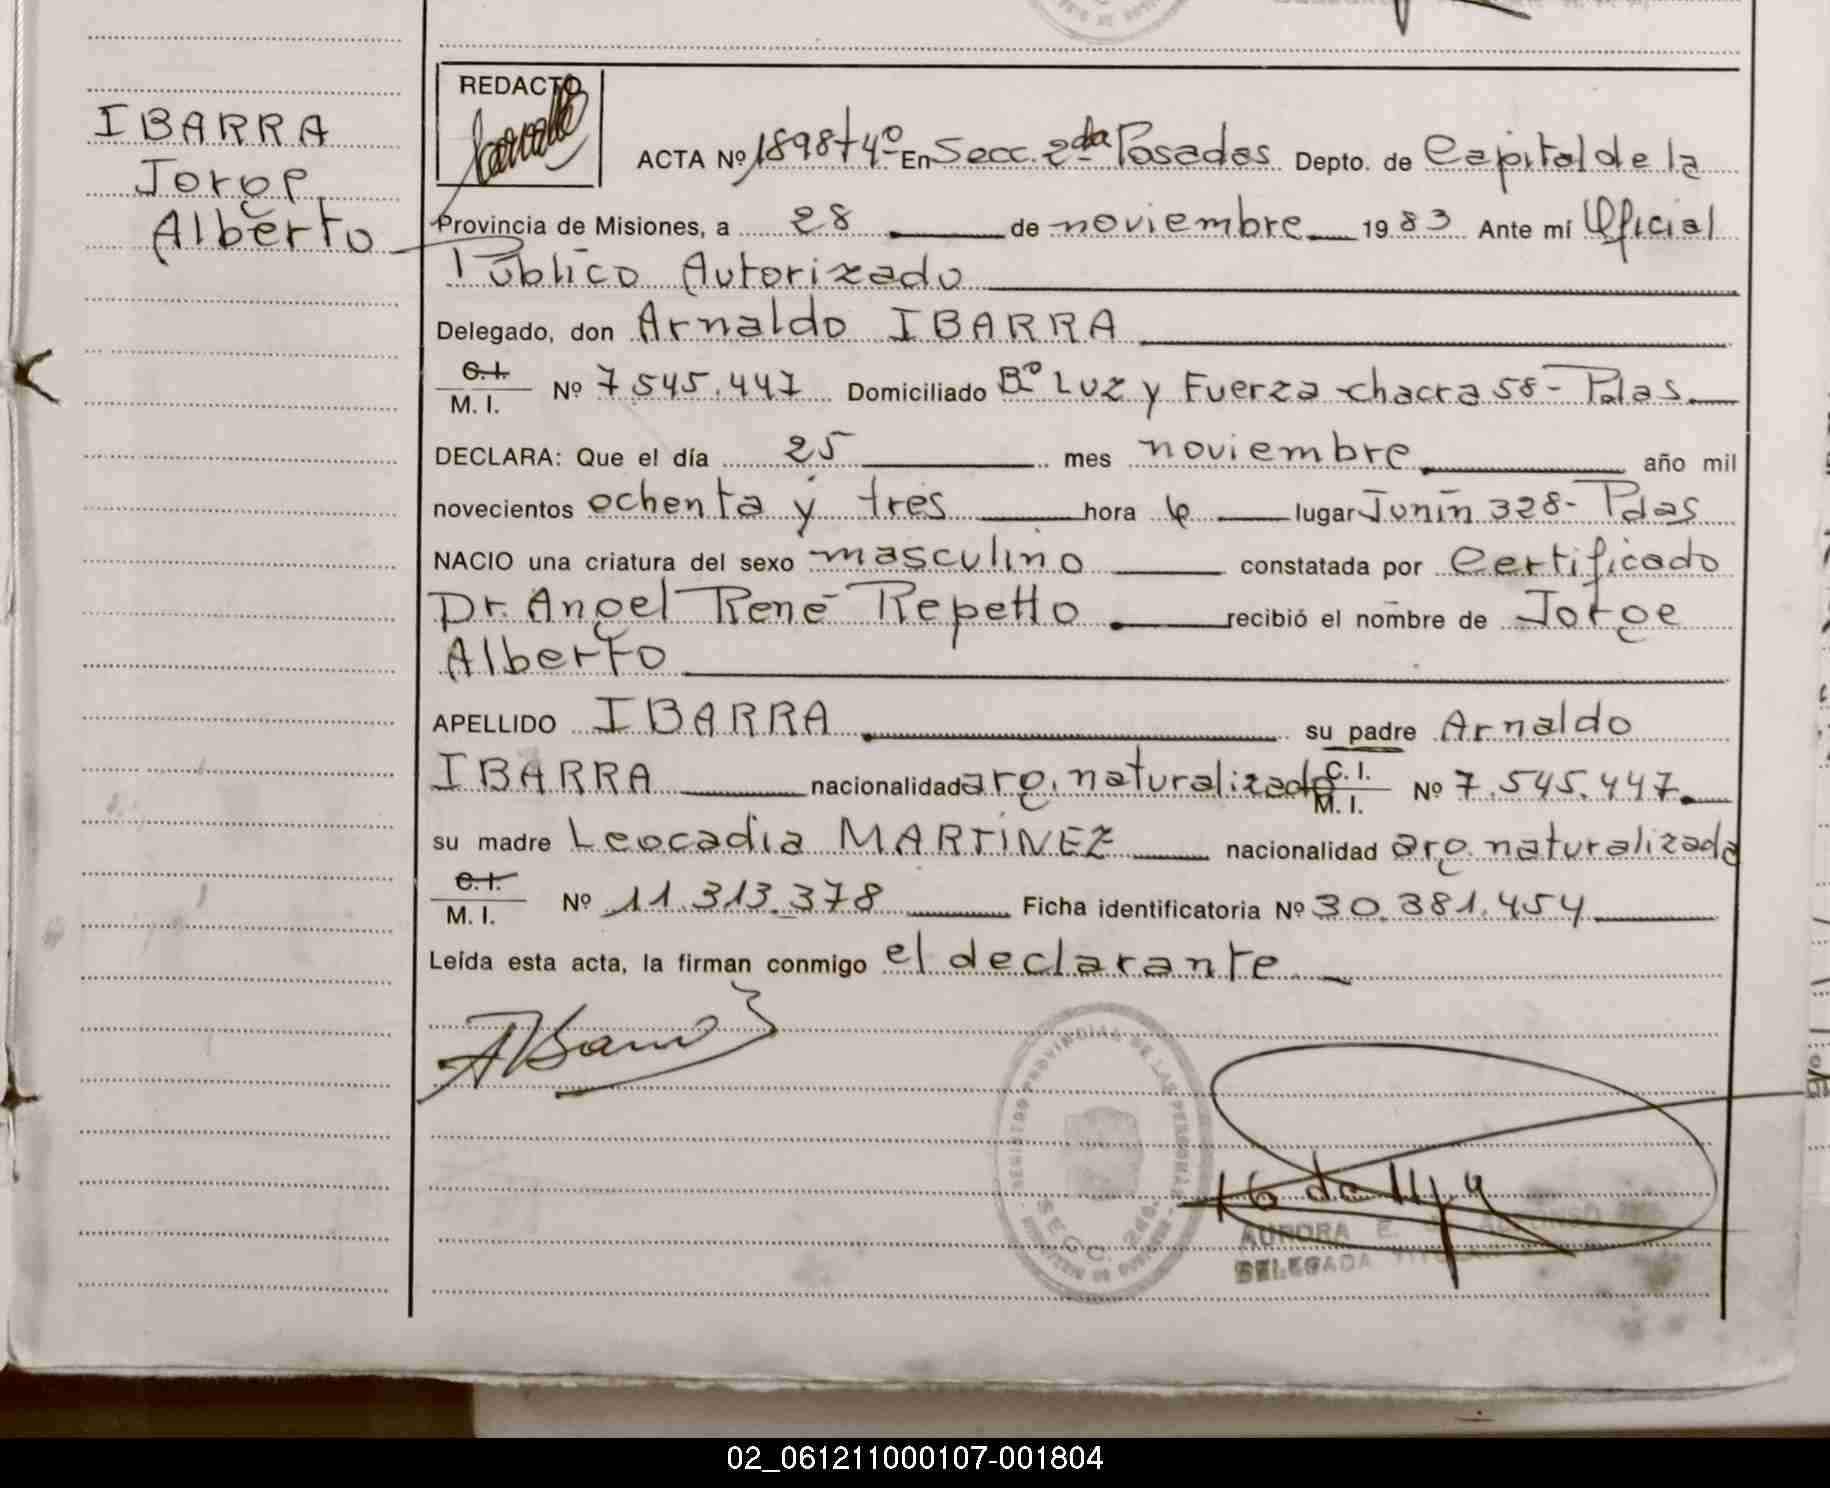 IBARRA
Jorge
Alberto
REDACTO
ACTA Nº 1898 t 4º En Secc. 2da Posadas Depto. de Capital de la
Provincia de Misiones, a 28 de noviembre 1983 Ante mí Oficial
Público Autorizado
Delegado, don Arnaldo IBARRA
C.I.
M. I. Nº 7.545.447 Domiciliado Bº Luz y Fuerza chacra 58 - Pdas.
DECLARA: Que el día 25 mes noviembre año mil
novecientos ochenta y tres hora 6 lugar Junín 328 - Pdas
NACIO una criatura del sexo masculino constatada por Certificado
Dr. Angel René Repetto recibió el nombre de Jorge
Alberto
APELLIDO IBARRA su padre Arnaldo
IBARRA nacionalidad arg. naturalizado C. I.
M. I. Nº 7.545.447.
su madre Leocadia MARTINEZ nacionalidad arg. naturalizada
C.I.
M. I. Nº 11.313.378 Ficha identificatoria Nº 30.381.454
Leída esta acta, la firman conmigo el declarante
REGISTRO PROVINCIAL DE LAS PERSONAS
SECC. 2da.
AURORA E.
DELEGADA TITULAR
02_061211000107-001804